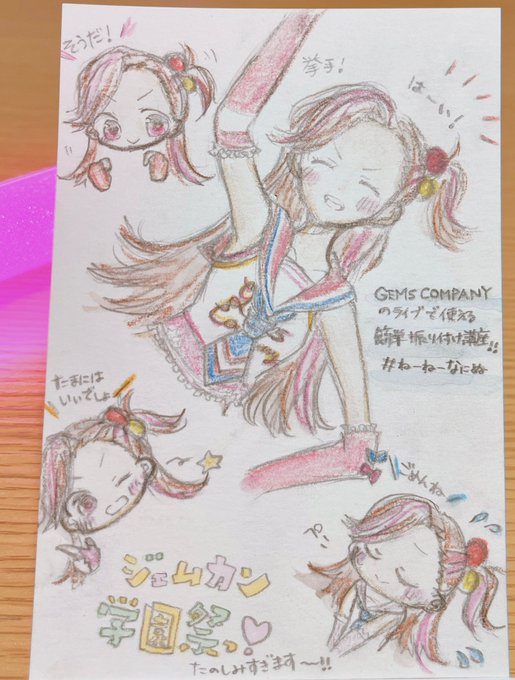 そうだ!
挙手!
は〜い!
GEMS COMPANY
のライブで使える
簡単振り付け講座!!
#ねーねーなにぬ
たまには
いいでしょ
ごめんね
ジェムカン
学園祭っ!♡
たのしみすぎます〜!!